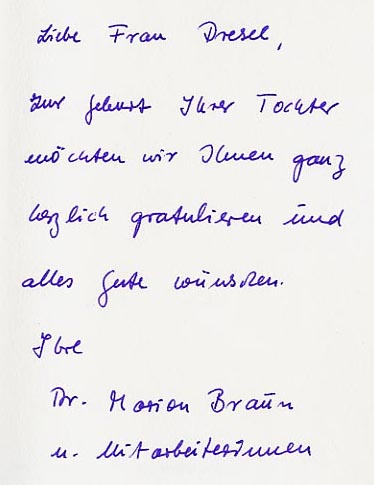 Liebe Frau Dresel,
zur Geburt Ihrer Tochter
möchten wir Ihnen ganz
herzlich gratulieren und
alles Gute wünschen.
Ihre
Dr. Marion Braun
u. Mitarbeiterinnen